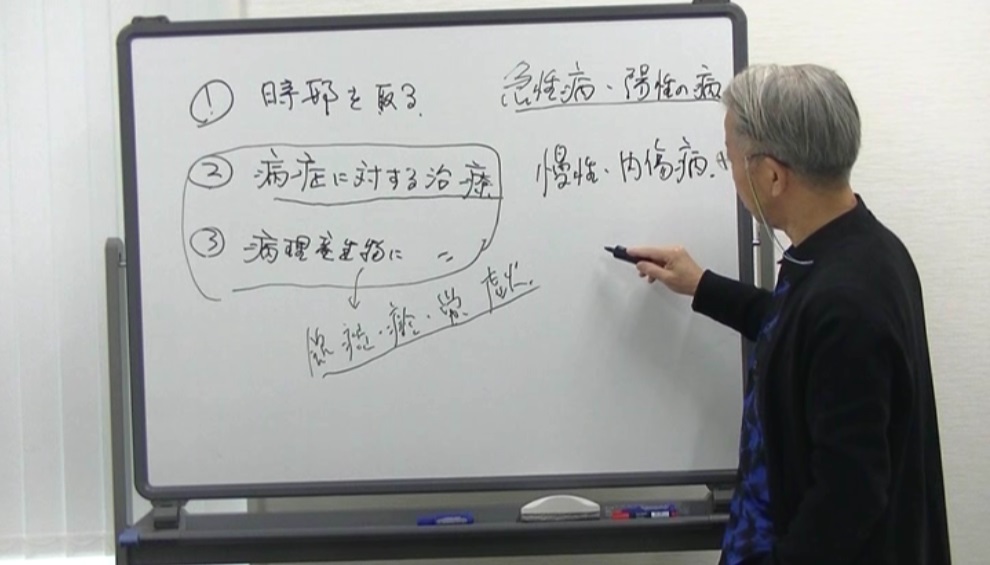 ① 時邪を取る
② 病症に対する治療
③ 病理産生物に 〃
痰・瘀・
急性病・陽性の病
慢性・内傷病.